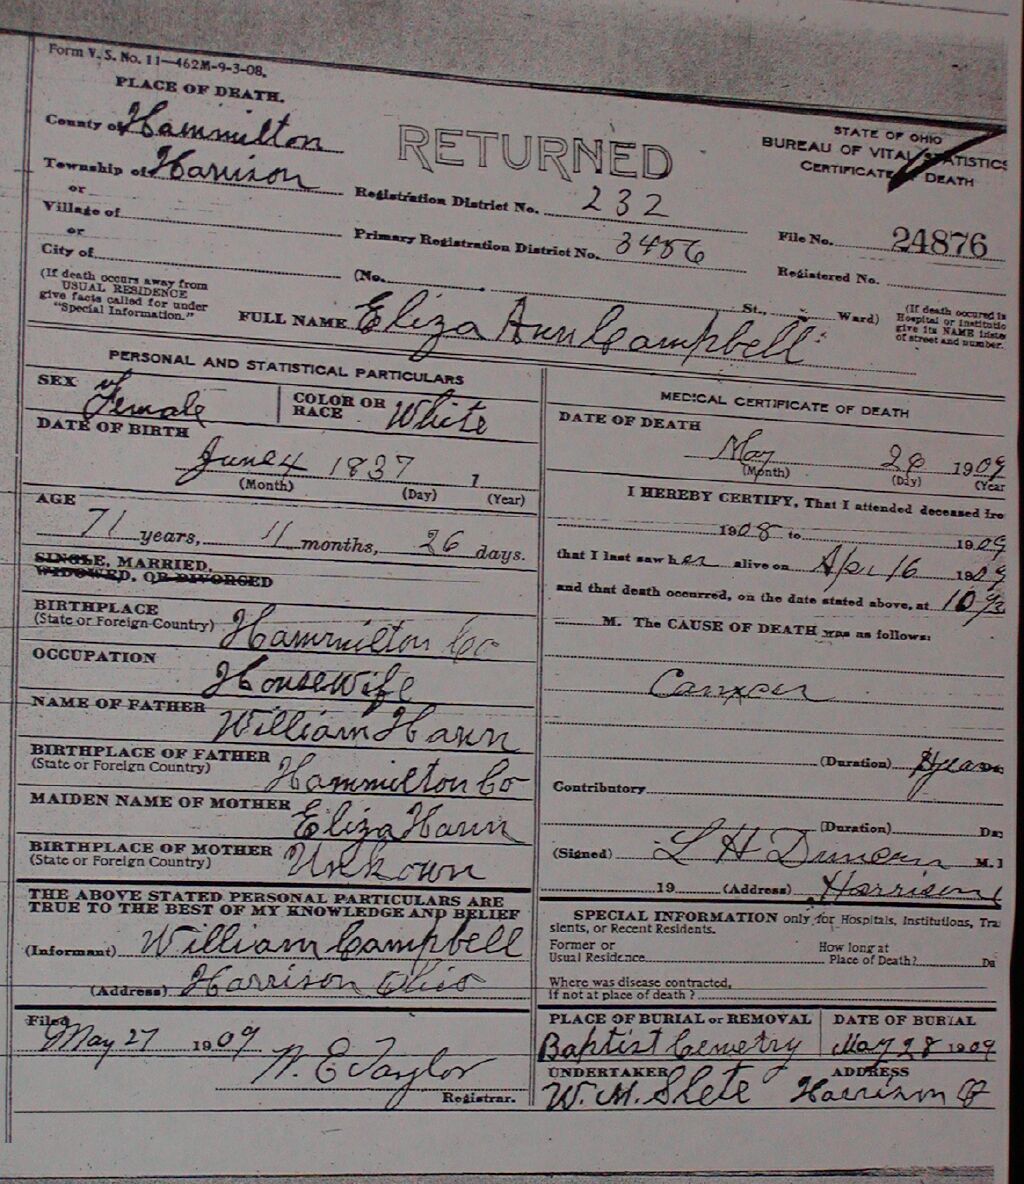 Form V. S. No. 11—462M-9-3-08.
PLACE OF DEATH.
County of Hammilton
Township of Harrison
or
Village of
or
City of
(If death occurs away from
USUAL RESIDENCE
give facts called for under
"Special Information.")
RETURNED
STATE OF OHIO
BUREAU OF VITAL STATISTICS
CERTIFICATE OF DEATH
Registration District No. 232
Primary Registration District No. 3486
File No. 24876
Registered No.
(No. St., Ward)
(If death occurred in
Hospital or institutio
give its NAME instea
of street and number.
FULL NAME Eliza Ann Campbell
PERSONAL AND STATISTICAL PARTICULARS
SEX Female
COLOR OR
RACE White
DATE OF BIRTH
June 4 1837 1
(Month) (Day) (Year)
AGE
71 years, 11 months, 26 days.
SINGLE, MARRIED,
WIDOWED, OR DIVORCED
BIRTHPLACE
(State or Foreign Country) Hammilton Co
OCCUPATION
HouseWife
NAME OF FATHER
William Hann
BIRTHPLACE OF FATHER
(State or Foreign Country) Hammilton Co
MAIDEN NAME OF MOTHER
Eliza Hann
BIRTHPLACE OF MOTHER
(State or Foreign Country) Unkown
THE ABOVE STATED PERSONAL PARTICULARS ARE
TRUE TO THE BEST OF MY KNOWLEDGE AND BELIEF
(Informant) William Campbell
(Address) Harrison Ohio
Filed
May 27 1909
W. E Taylor
Registrar.
MEDICAL CERTIFICATE OF DEATH
DATE OF DEATH
May 26 1909
(Month) (Day) (Year
I HEREBY CERTIFY, That I attended deceased fro
1908 to 1909
that I last saw her alive on Apr 16 1909
and that death occurred, on the date stated above, at 10
M. The CAUSE OF DEATH was as follows:
Cancer
(Duration) years
Contributory
(Duration) Da
(Signed) L H Duncan M.
19 (Address) Harrison
SPECIAL INFORMATION only for Hospitals, Institutions, Tra
sients, or Recent Residents.
Former or
Usual Residence
How long at
Place of Death? Da
Where was disease contracted,
if not at place of death?
PLACE OF BURIAL or REMOVAL
Baptist Cemetry
DATE OF BURIAL
May 28 1909
UNDERTAKER
W. M. Slete
ADDRESS
Harrison O